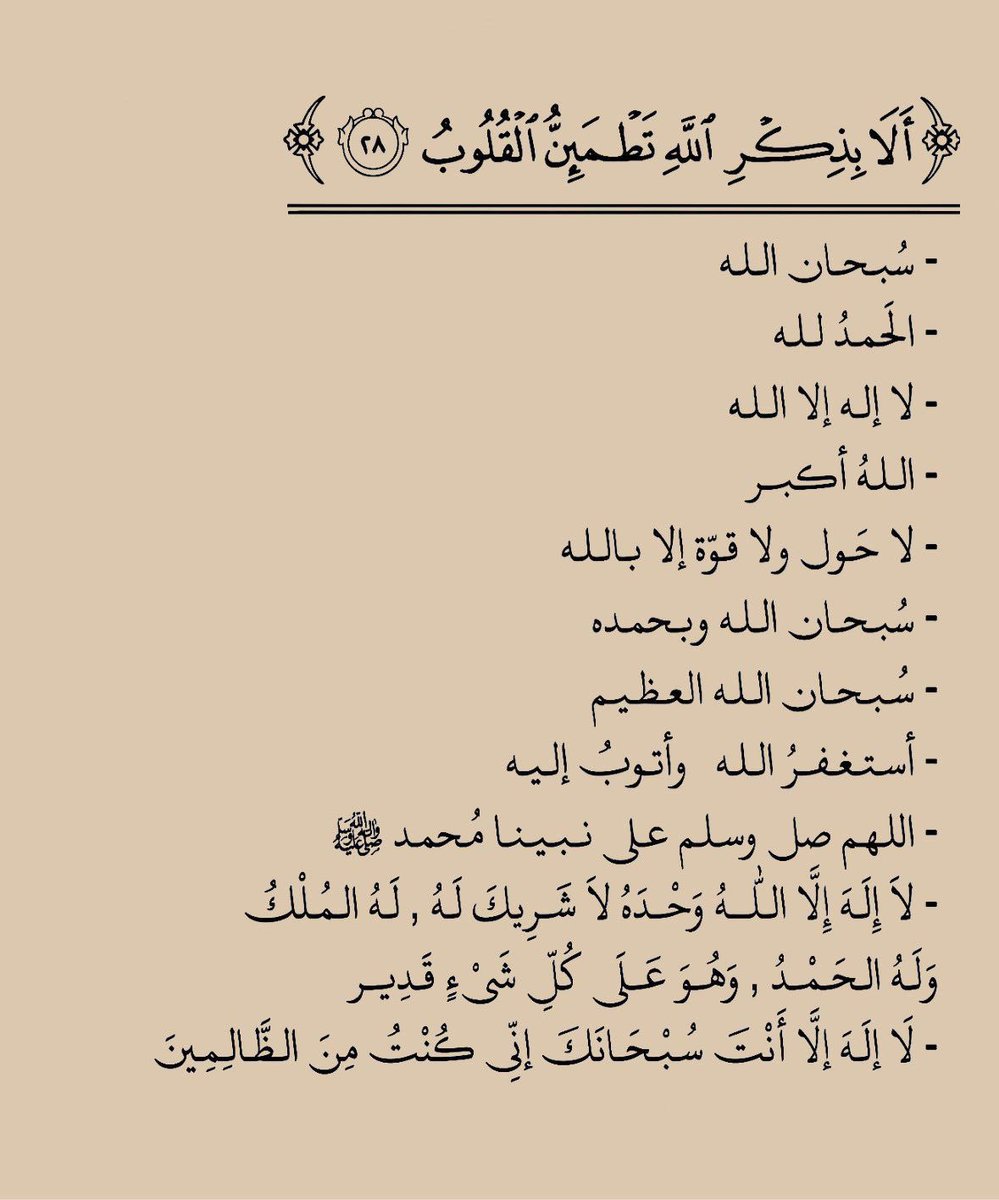 ﴿أَلَا بِذِكۡرِ ٱللَّهِ تَطۡمَئِنُّ ٱلۡقُلُوبُ ٢٨﴾
- سُبحان الله
- الَحمدُ لله
- لا إله إلا الله
- اللهُ أكبر
- لا حَول ولا قوّة إلا بالله
- سُبحان الله وبحمده
- سُبحان الله العظيم
- أستغفرُ الله وأتوبُ إليه
- اللهم صل وسلم على نبينا مُحمد ﷺ
- لاَ إِلَهَ إِلَّا اللّٰهُ وَحْدَهُ لاَ شَرِيكَ لَهُ , لَهُ المُلْكُ
وَلَهُ الحَمْدُ , وَهُوَ عَلَى كُلِّ شَىْءٍ قَدِير
- لَا إلَهَ إلَّا أَنْتَ سُبْحَانَكَ إنِّي كُنْتُ مِنَ الظَّالِمِينَ